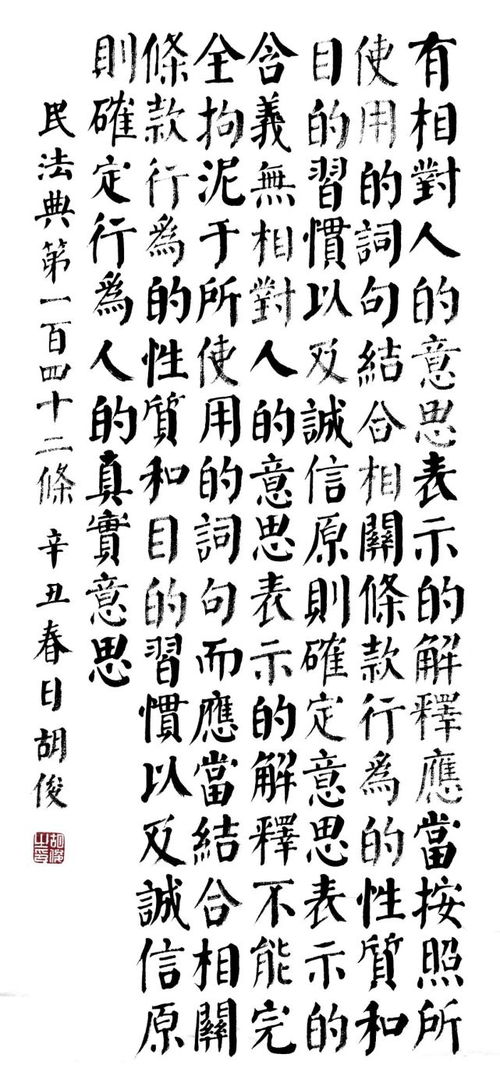 有相對人的意思表示的解釋應當按照所
使用的詞句結合相關條款行為的性質和
目的習慣以及誠信原則確定意思表示的
含義無相對人的意思表示的解釋不能完
全拘泥于所使用的詞句而應當結合相關
條款行為的性質和目的習慣以及誠信原
則確定行為人的真實意思
民法典第一百四十二條 辛丑春日胡俊
胡俊之印